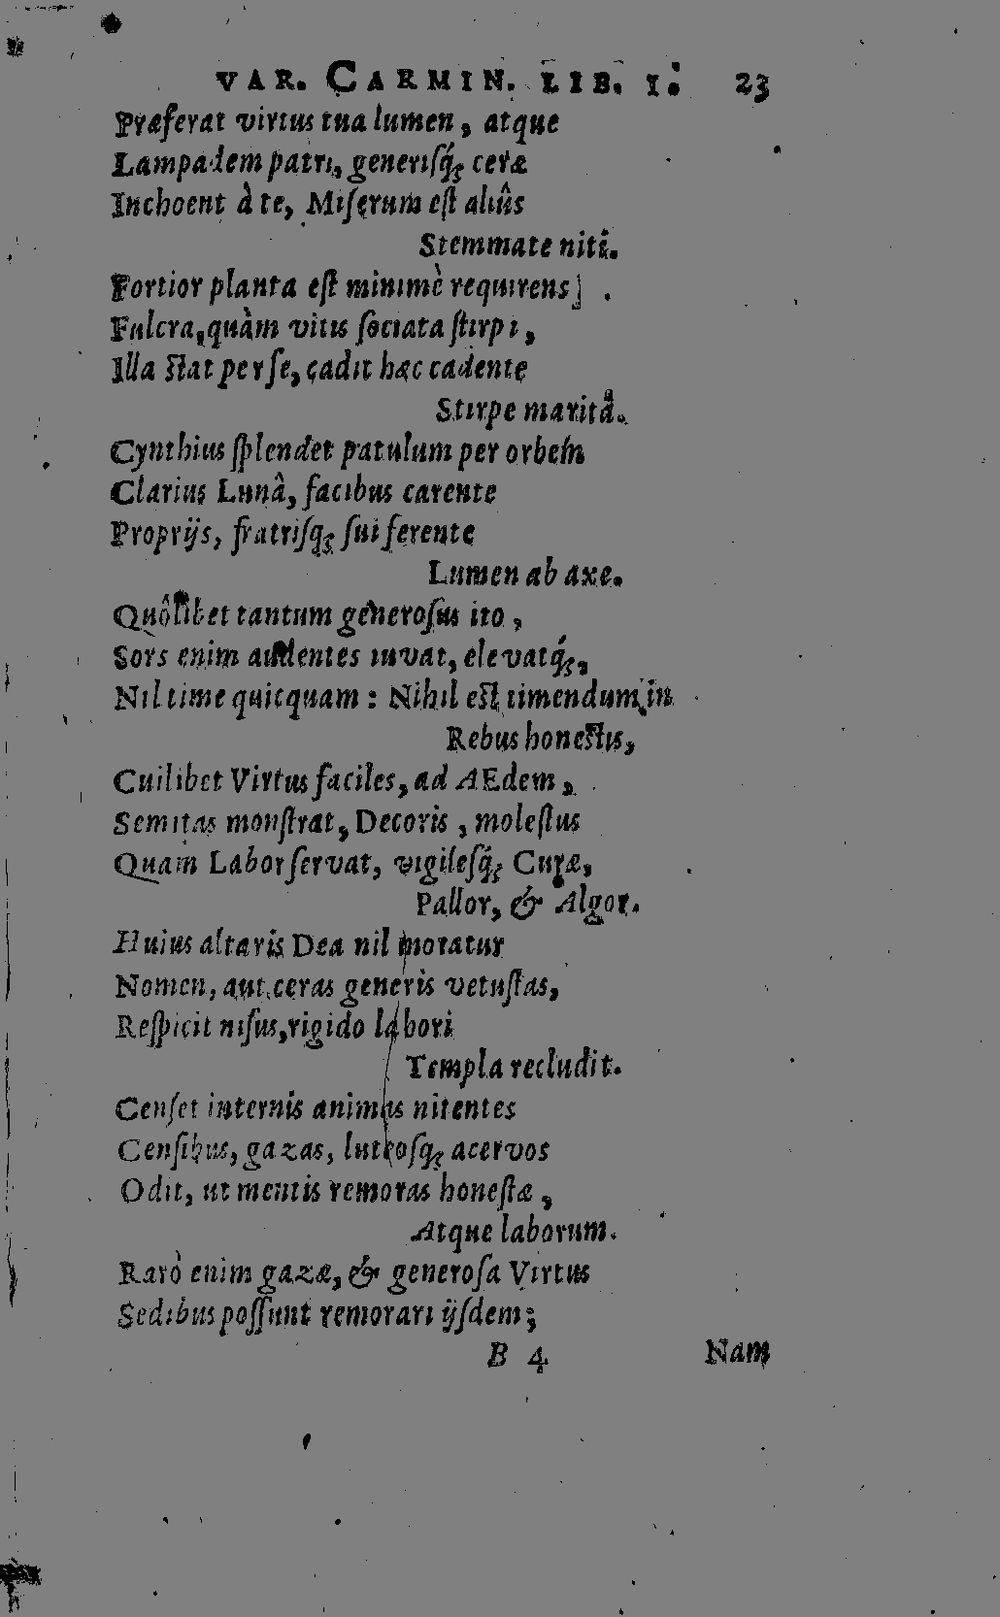 VAR. CARMIN. LIB. I. 23
Præferat virtus tua lumen, atque
Lampadem patri, generisq́; ceræ
Inchoent à te, Miserum est aliûs
Stemmate niti.
Fortior planta est minimè requirens
Fulcra, quàm vitis sociata stirpi,
Illa stat per se, cadit hæc cadente
Stirpe maritâ.
Cynthius splendet patulum per orbem
Clarius Lunâ, facibus carente
Proprijs, fratrisq; sui ferente
Lumen ab axe.
Quôlibet tantum generosus ito,
Sors enim audentes iuvat, elevatq́;,
Nil time quicquam: Nihil est timendum in
Rebus honestis,
Cuilibet Virtus faciles, ad AEdem,
Semitas monstrat, Decoris, molestus
Quam Labor servat, vigilesq́; Curæ,
Pallor, & Algor.
Huius altaris Dea nil moratur
Nomen, aut ceras generis vetustas,
Respicit nisus, rigido labori
Templa recludit.
Censet internis animas nitentes
Censibus, gazas, luteosq; acervos
Odit, ut mentis remoras honestæ,
Atque laborum.
Rarò enim gazæ, & generosa Virtus
Sedibus possunt remorari ijsdem;
B 4 Nam